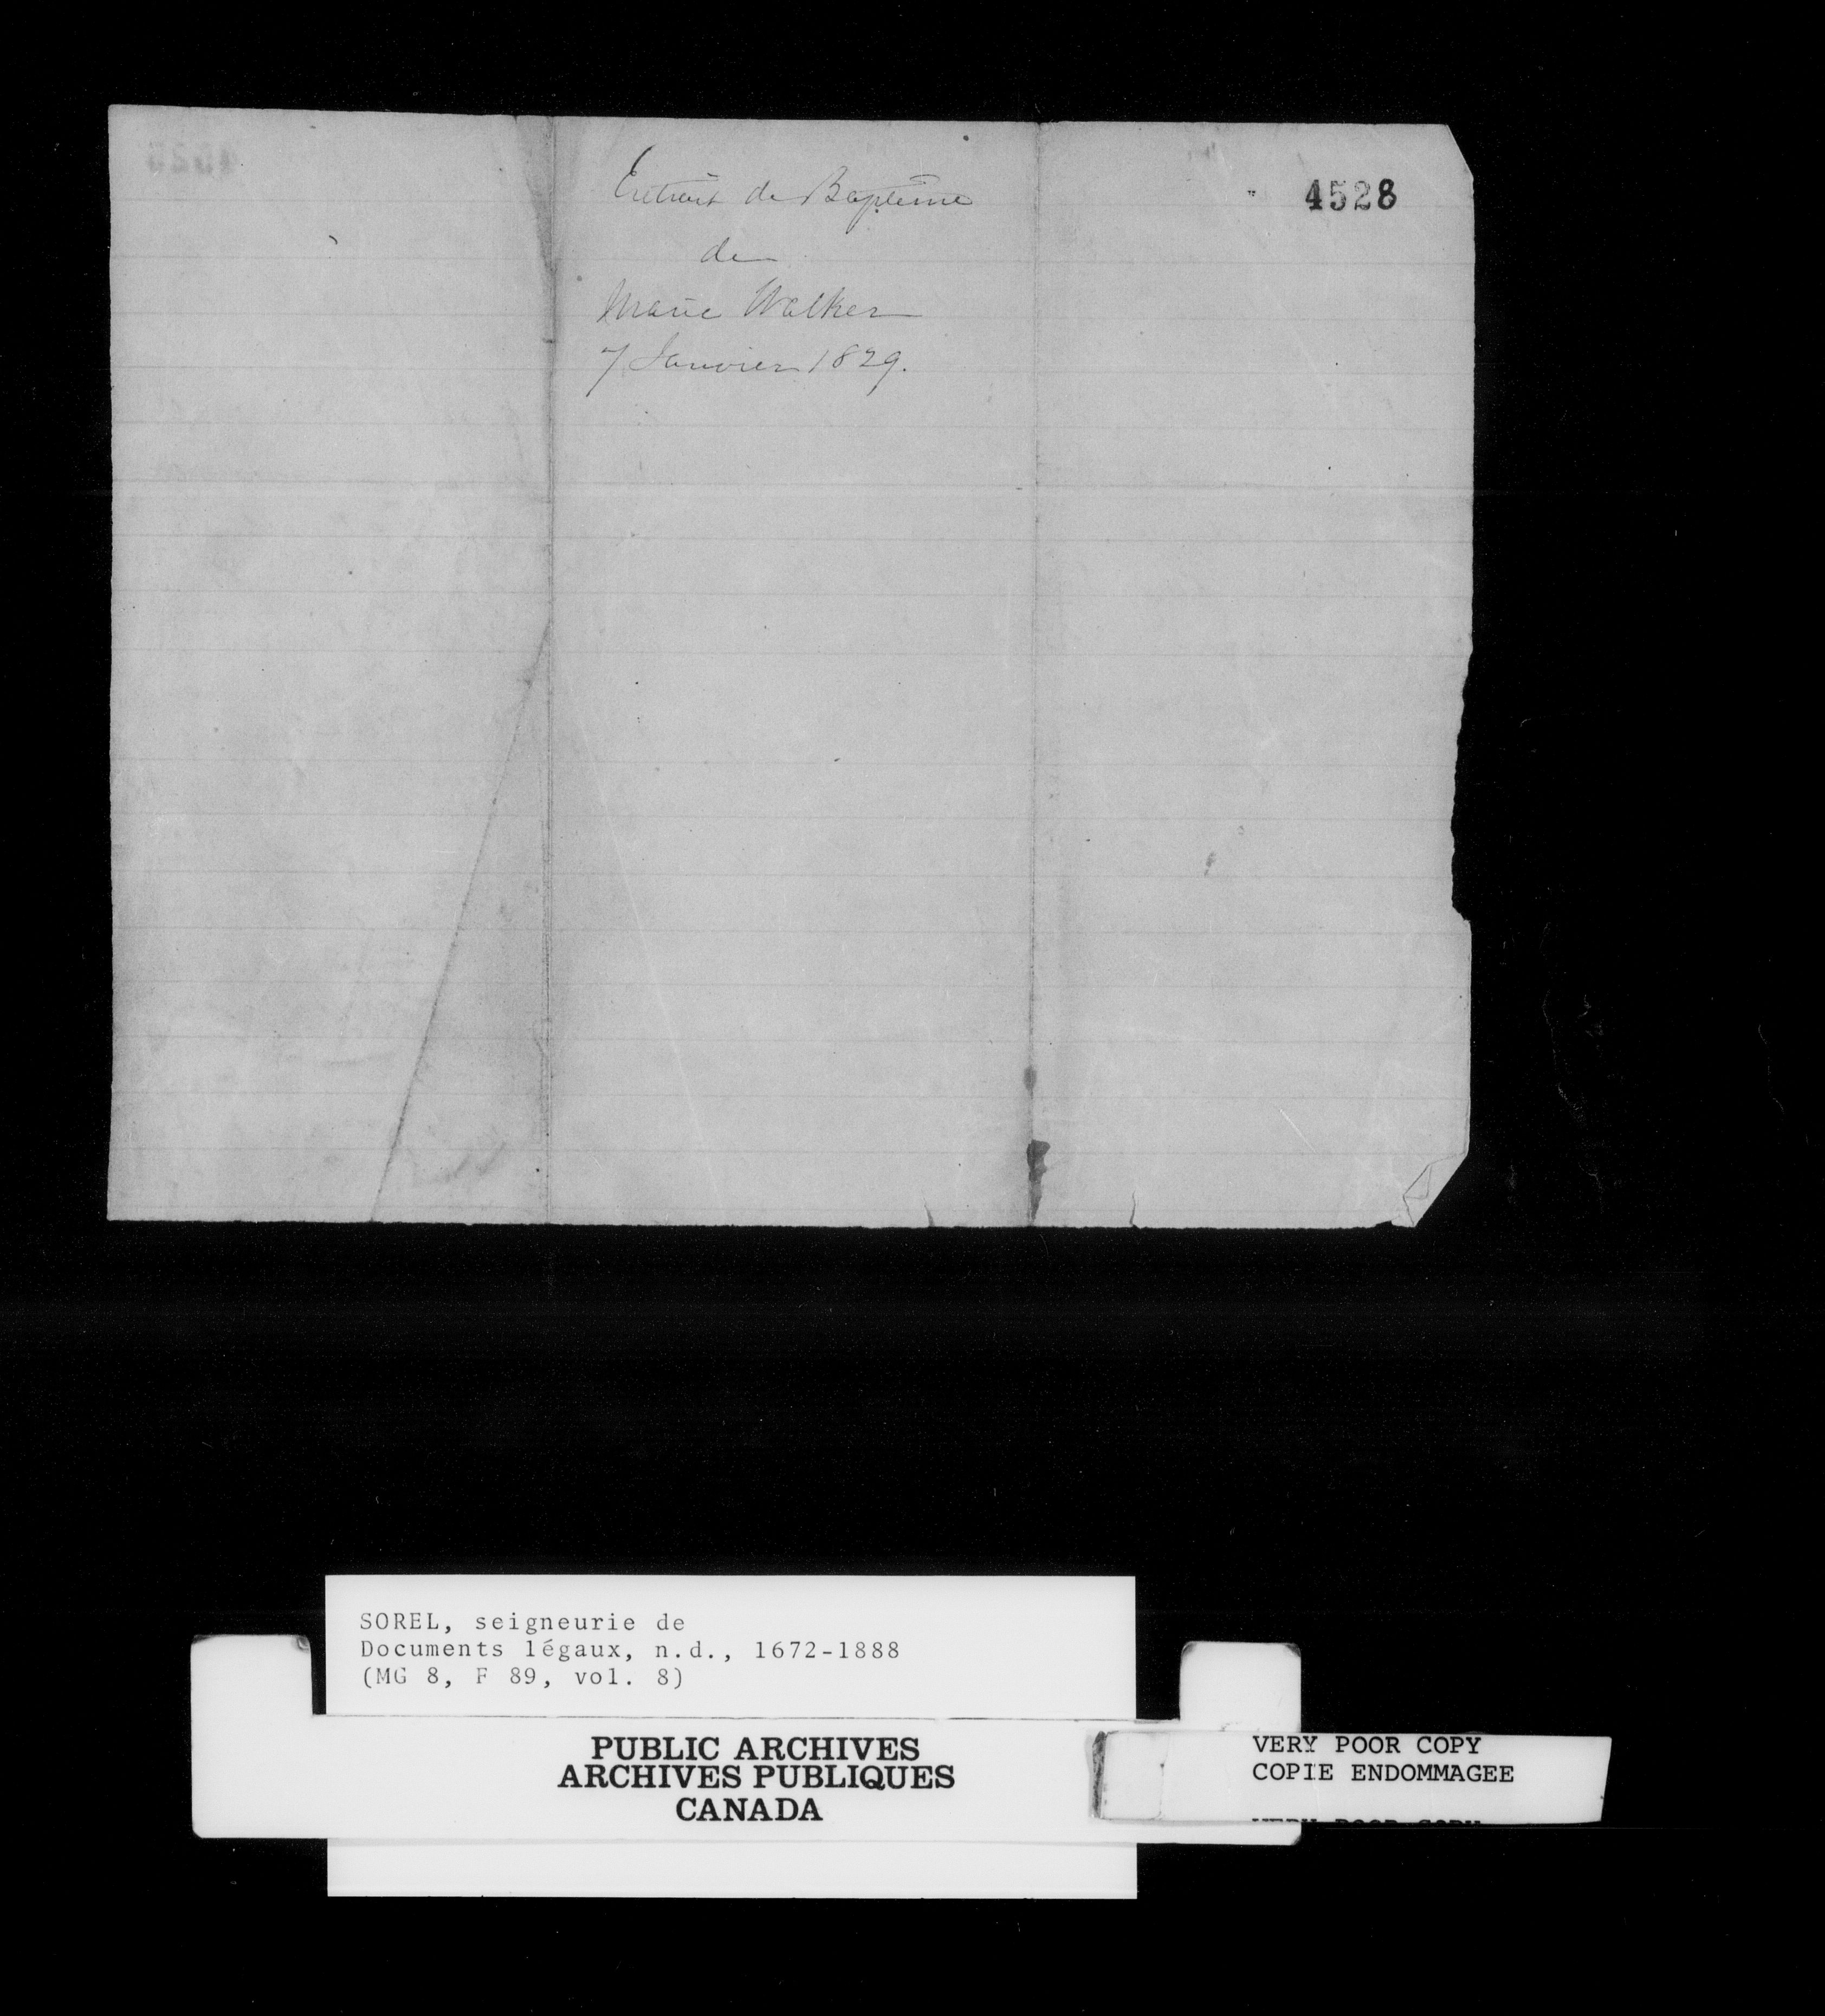 4528
Extrait de Baptême
de
Marie Walker
7 Janvier 1829.
SOREL, seigneurie de
Documents légaux, n.d., 1672-1888
(MG 8, F 89, vol. 8)
PUBLIC ARCHIVES
ARCHIVES PUBLIQUES
CANADA
VERY POOR COPY
COPIE ENDOMMAGEE
VERY POOR COPY